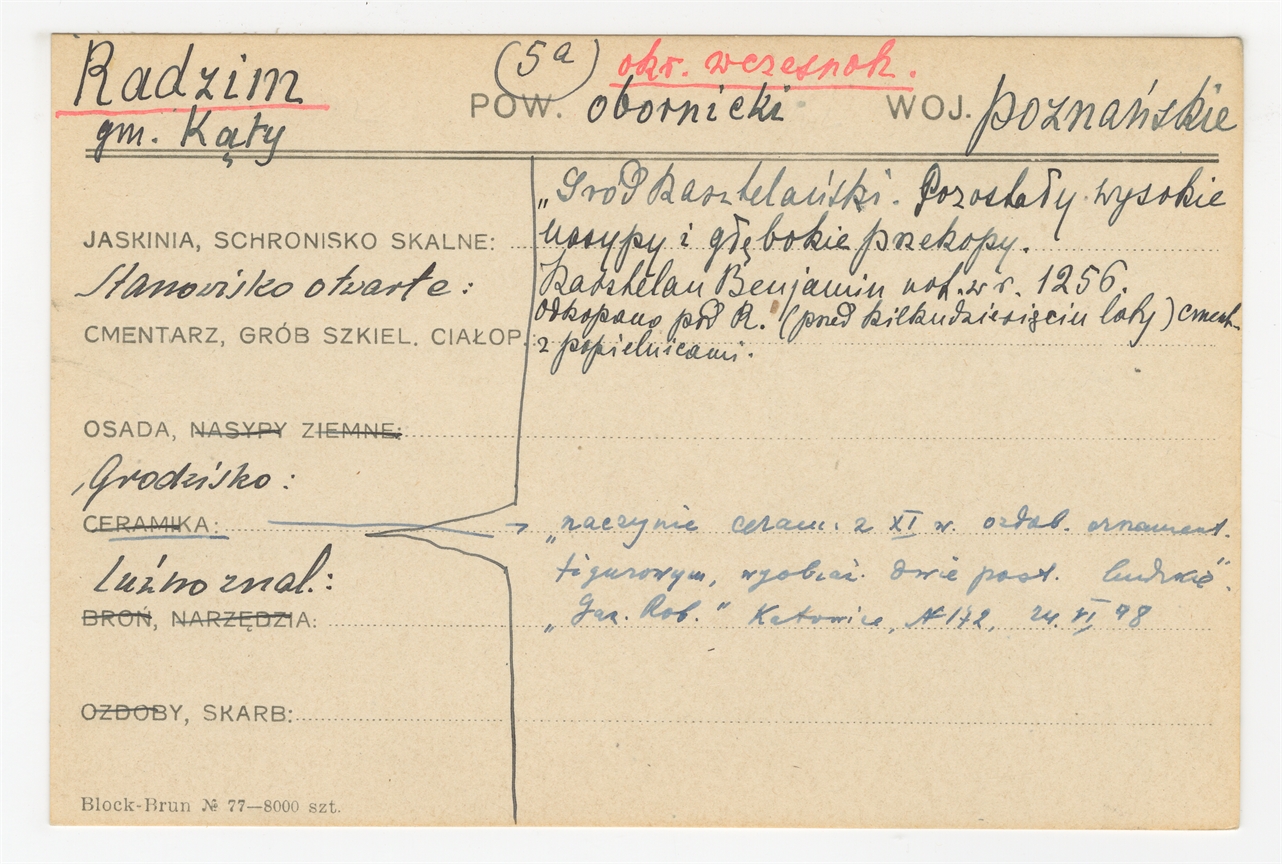 Radzim (5a) okr. wczesnoh.
gm. Kąty POW. obornicki WOJ. poznańskie
„Gród kasztelański. Pozostały wysokie
JASKINIA, SCHRONISKO SKALNE: nasypy i głębokie przekopy.
Stanowisko otwarte: Kasztelan Benjamin not. w r. 1256.
odkopano pod R. (przed kilkudziesięciu laty) cment.
CMENTARZ, GRÓB SZKIEL. CIAŁOP.: z popielnicami.
OSADA, NASYPY ZIEMNE:
Grodzisko:
CERAMIKA: → „naczynie ceram. z XI w. ozdob. ornament.
Luźno znal.: figurowym, wyobraż. dwie post. ludzkie".
BROŃ, NARZĘDZIA: „Gaz. Rob." Katowice, N 172, 24 VI 48
OZDOBY, SKARB:
Block-Brun № 77—8000 szt.